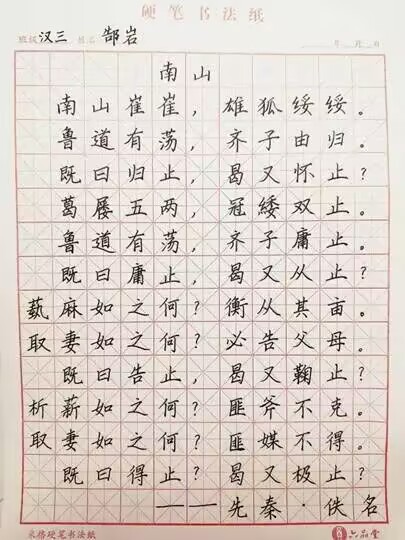 硬笔书法纸
班级 汉三 姓名 郜岩 年 月 日
南山
南山崔崔，雄狐绥绥。
鲁道有荡，齐子由归。
既曰归止，曷又怀止？
葛屦五两，冠緌双止。
鲁道有荡，齐子庸止。
既曰庸止，曷又从止？
蓺麻如之何？衡从其亩。
取妻如之何？必告父母。
既曰告止，曷又鞠止？
析薪如之何？匪斧不克。
取妻如之何？匪媒不得。
既曰得止？曷又极止？
——先秦·佚名
米格硬笔书法纸 六品堂